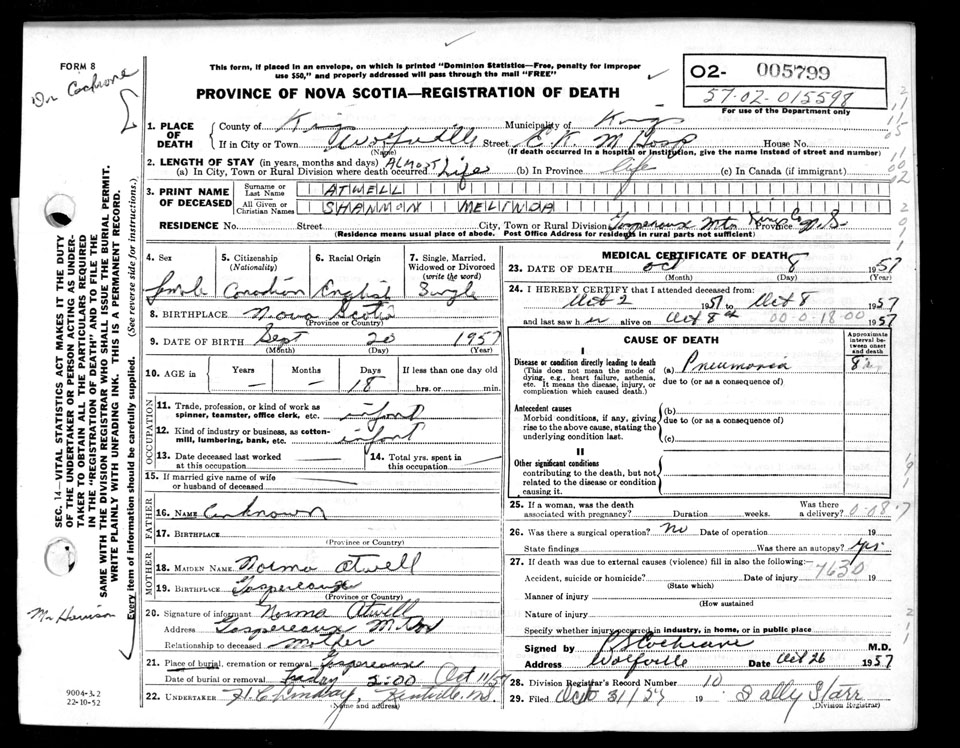 FORM 8
Dr Cochrane
This form, if placed in an envelope, on which is printed "Dominion Statistics—Free, penalty for improper
use $50," and properly addressed will pass through the mail "FREE"
PROVINCE OF NOVA SCOTIA—REGISTRATION OF DEATH
O2- 005799
57-02-015598
For use of the Department only
1. PLACE OF DEATH
County of Kings Municipality of Kings
If in City or Town Wolfville Street E. K. M Hosp House No.
(Name) (If death occurred in a hospital or institution, give the name instead of street and number)
2. LENGTH OF STAY (in years, months and days)
(a) In City, Town or Rural Division where death occurred ALMOST Life (b) In Province life (c) In Canada (if immigrant)
3. PRINT NAME OF DECEASED
Surname or Last Name ATWELL
All Given or Christian Names SHANNON MELINDA
RESIDENCE No. Street City, Town or Rural Division Gaspereaux Mtn Kings Co Province N.S.
(Residence means usual place of abode. Post Office Address for residents in rural parts not sufficient)
4. Sex 5. Citizenship (Nationality) 6. Racial Origin 7. Single, Married, Widowed or Divorced (write the word)
female Canadian English Single
8. BIRTHPLACE Nova Scotia
(Province or Country)
9. DATE OF BIRTH Sept 20 1957
(Month) (Day) (Year)
10. AGE in Years Months Days If less than one day old
— — 18 hrs. or min.
OCCUPATION
11. Trade, profession, or kind of work as
spinner, teamster, office clerk, etc. infant
12. Kind of industry or business, as cotton-
mill, lumbering, bank, etc. infant
13. Date deceased last worked at this occupation —
14. Total yrs. spent in this occupation —
15. If married give name of wife
or husband of deceased —
FATHER
16. NAME unknown
17. BIRTHPLACE
(Province or Country)
MOTHER
18. MAIDEN NAME Norma Atwell
19. BIRTHPLACE Gaspereaux
(Province or Country)
20. Signature of informant Norma Atwell
Address Gaspereaux Mtn
Relationship to deceased Mother
21. Place of burial, cremation or removal Gaspereaux
Date of burial or removal Friday 2:00 Oct 11/57
22. UNDERTAKER H. C. Lindsay, Kentville N.S.
(Name and address)
MEDICAL CERTIFICATE OF DEATH
23. DATE OF DEATH Oct 8 1957
(Month) (Day)
24. I HEREBY CERTIFY that I attended deceased from:
Oct 2 1957 to Oct 8 1957
and last saw her alive on Oct 8th 00-0-18-00 1957
CAUSE OF DEATH
Approximate interval between onset and death
I
Disease or condition directly leading to death
(This does not mean the mode of
dying, e.g., heart failure, asthenia,
etc. It means the disease, injury, or
complication which caused death.)
(a) Pneumonia 8 days
due to (or as a consequence of)
Antecedent causes
Morbid conditions, if any, giving
rise to the above cause, stating the
underlying condition last.
(b)
due to (or as a consequence of)
(c)
II
Other significant conditions
contributing to the death, but not
related to the disease or condition
causing it.
25. If a woman, was the death
associated with pregnancy? Duration weeks. Was there a delivery?
26. Was there a surgical operation? No Date of operation 19
State findings Was there an autopsy? Yes
27. If death was due to external causes (violence) fill in also the following:—
7630
Accident, suicide or homicide? Date of injury 19
(State which)
Manner of injury
(How sustained
Nature of injury
Specify whether injury occurred in industry, in home, or in public place
Signed by Cochrane M.D.
Address Wolfville Date Oct 26 1957
28. Division Registrar's Record Number 10
29. Filed Oct 31/57 19 Sally Starr
(Division Registrar)
SEC. 14—VITAL STATISTICS ACT MAKES IT THE DUTY
OF THE UNDERTAKER OR PERSON ACTING AS UNDER-
TAKER TO OBTAIN ALL THE PARTICULARS REQUIRED
IN THE "REGISTRATION OF DEATH" AND TO FILE THE
SAME WITH THE DIVISION REGISTRAR WHO SHALL ISSUE THE BURIAL PERMIT.
WRITE PLAINLY WITH UNFADING INK. THIS IS A PERMANENT RECORD.
Every item of information should be carefully supplied. (See reverse side for instructions.)
9004-3.2
22-10-52